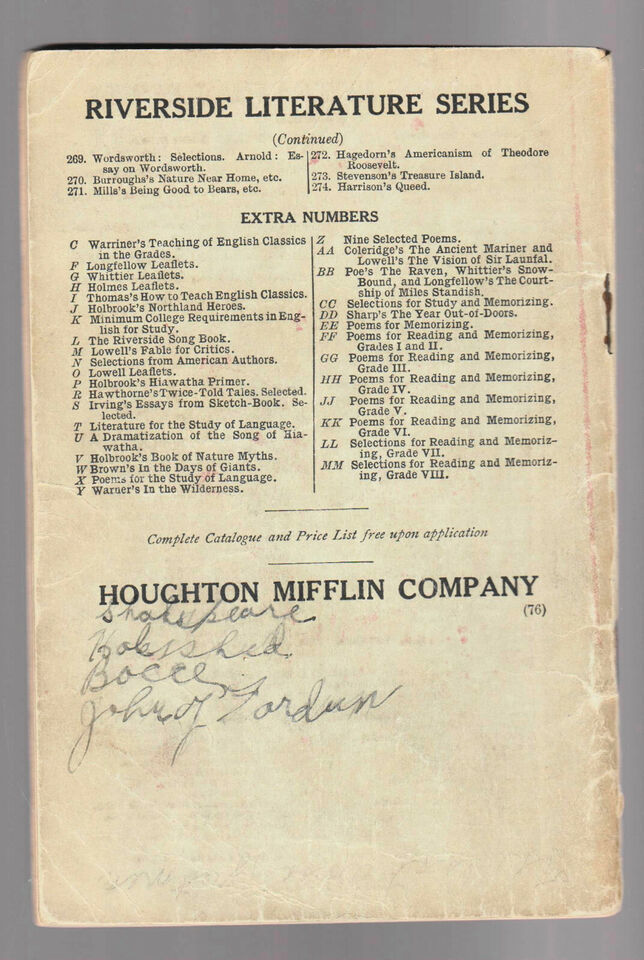 RIVERSIDE LITERATURE SERIES
(Continued)
269. Wordsworth: Selections. Arnold: Es-
say on Wordsworth.
270. Burroughs's Nature Near Home, etc.
271. Mills's Being Good to Bears, etc.
272. Hagedorn's Americanism of Theodore
Roosevelt.
273. Stevenson's Treasure Island.
274. Harrison's Queed.
EXTRA NUMBERS
C Warriner's Teaching of English Classics
in the Grades.
F Longfellow Leaflets.
G Whittier Leaflets.
H Holmes Leaflets.
I Thomas's How to Teach English Classics.
J Holbrook's Northland Heroes.
K Minimum College Requirements in Eng-
lish for Study.
L The Riverside Song Book.
M Lowell's Fable for Critics.
N Selections from American Authors.
O Lowell Leaflets.
P Holbrook's Hiawatha Primer.
R Hawthorne's Twice-Told Tales. Selected.
S Irving's Essays from Sketch-Book. Se-
lected.
T Literature for the Study of Language.
U A Dramatization of the Song of Hia-
watha.
V Holbrook's Book of Nature Myths.
W Brown's In the Days of Giants.
X Poems for the Study of Language.
Y Warner's In the Wilderness.
Z Nine Selected Poems.
AA Coleridge's The Ancient Mariner and
Lowell's The Vision of Sir Launfal.
BB Poe's The Raven, Whittier's Snow-
Bound, and Longfellow's The Court-
ship of Miles Standish.
CC Selections for Study and Memorizing.
DD Sharp's The Year Out-of-Doors.
EE Poems for Memorizing.
FF Poems for Reading and Memorizing,
Grades I and II.
GG Poems for Reading and Memorizing,
Grade III.
HH Poems for Reading and Memorizing,
Grade IV.
JJ Poems for Reading and Memorizing,
Grade V.
KK Poems for Reading and Memorizing,
Grade VI.
LL Selections for Reading and Memoriz-
ing, Grade VII.
MM Selections for Reading and Memoriz-
ing, Grade VIII.
Complete Catalogue and Price List free upon application
HOUGHTON MIFFLIN COMPANY
(76)
Shakespeare
John of Fordun